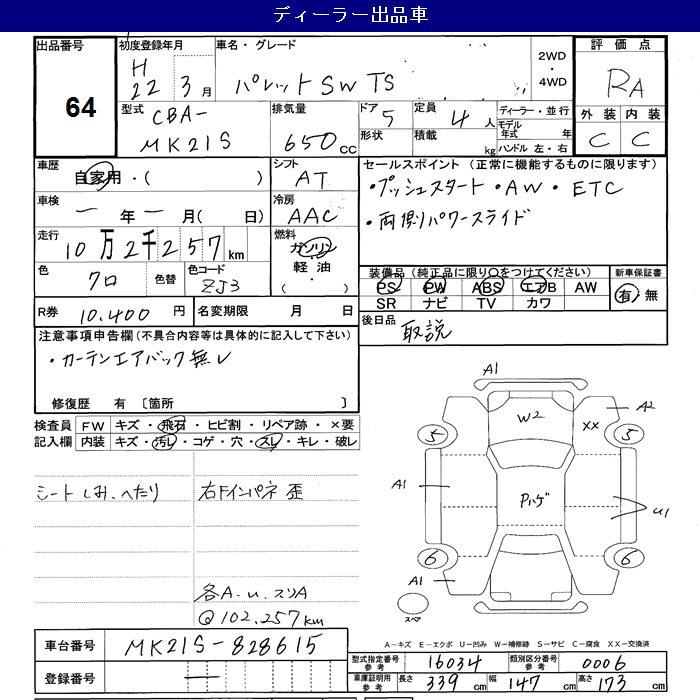 ディーラー出品車
出品番号 64
初度登録年月 H 22年 3月
車名・グレード パレットSW TS
2WD・4WD
評価点 RA
型式 CBA-MK21S
排気量 650cc
ドア 5 形状
定員 4人 積載 kg
ディーラー・並行
モデル年式 年
ハンドル 左・右
外装 内装
C C
車歴 自家用・( )
シフト AT
車検 ー年ー月(日)
冷房 AAC
走行 10万2千257km
燃料 ガソリン 軽油・( )
色 クロ 色替
色コード ZJ3
R券 10,400円 名変期限 月 日
セールスポイント(正常に機能するものに限ります)
・プッシュスタート・AW・ETC
・両側パワースライド
装備品(純正品に限り○をつけてください)
PS PW ABS エアB AW
SR ナビ TV カワ
新車保証書
有・無
後日品 取説
注意事項申告欄(不具合内容等は具体的に記入して下さい)
・カーテンエアバック無し
修復歴 有〔箇所 〕
検査員記入欄
FW キズ・飛石・ヒビ割・リペア跡・×要
内装 キズ・汚レ・コゲ・穴・スレ・キレ・破レ
シートしみ、へたり
右Fインパネ歪
各A.u.スリA
@102,257km
A1
W2
XX
A2
5
5
A1
Pハゲ
u1
6
6
A1
スペア
A-キズ E-エクボ U-凹み W-補修跡 S-サビ C-腐食 XX-交換済
車台番号 MK21S-828615
登録番号 ー
型式指定番号 参考 16034 類別区分番号 参考 0006
車庫証明用 参考 長さ 339cm 幅 147cm 高さ 173cm